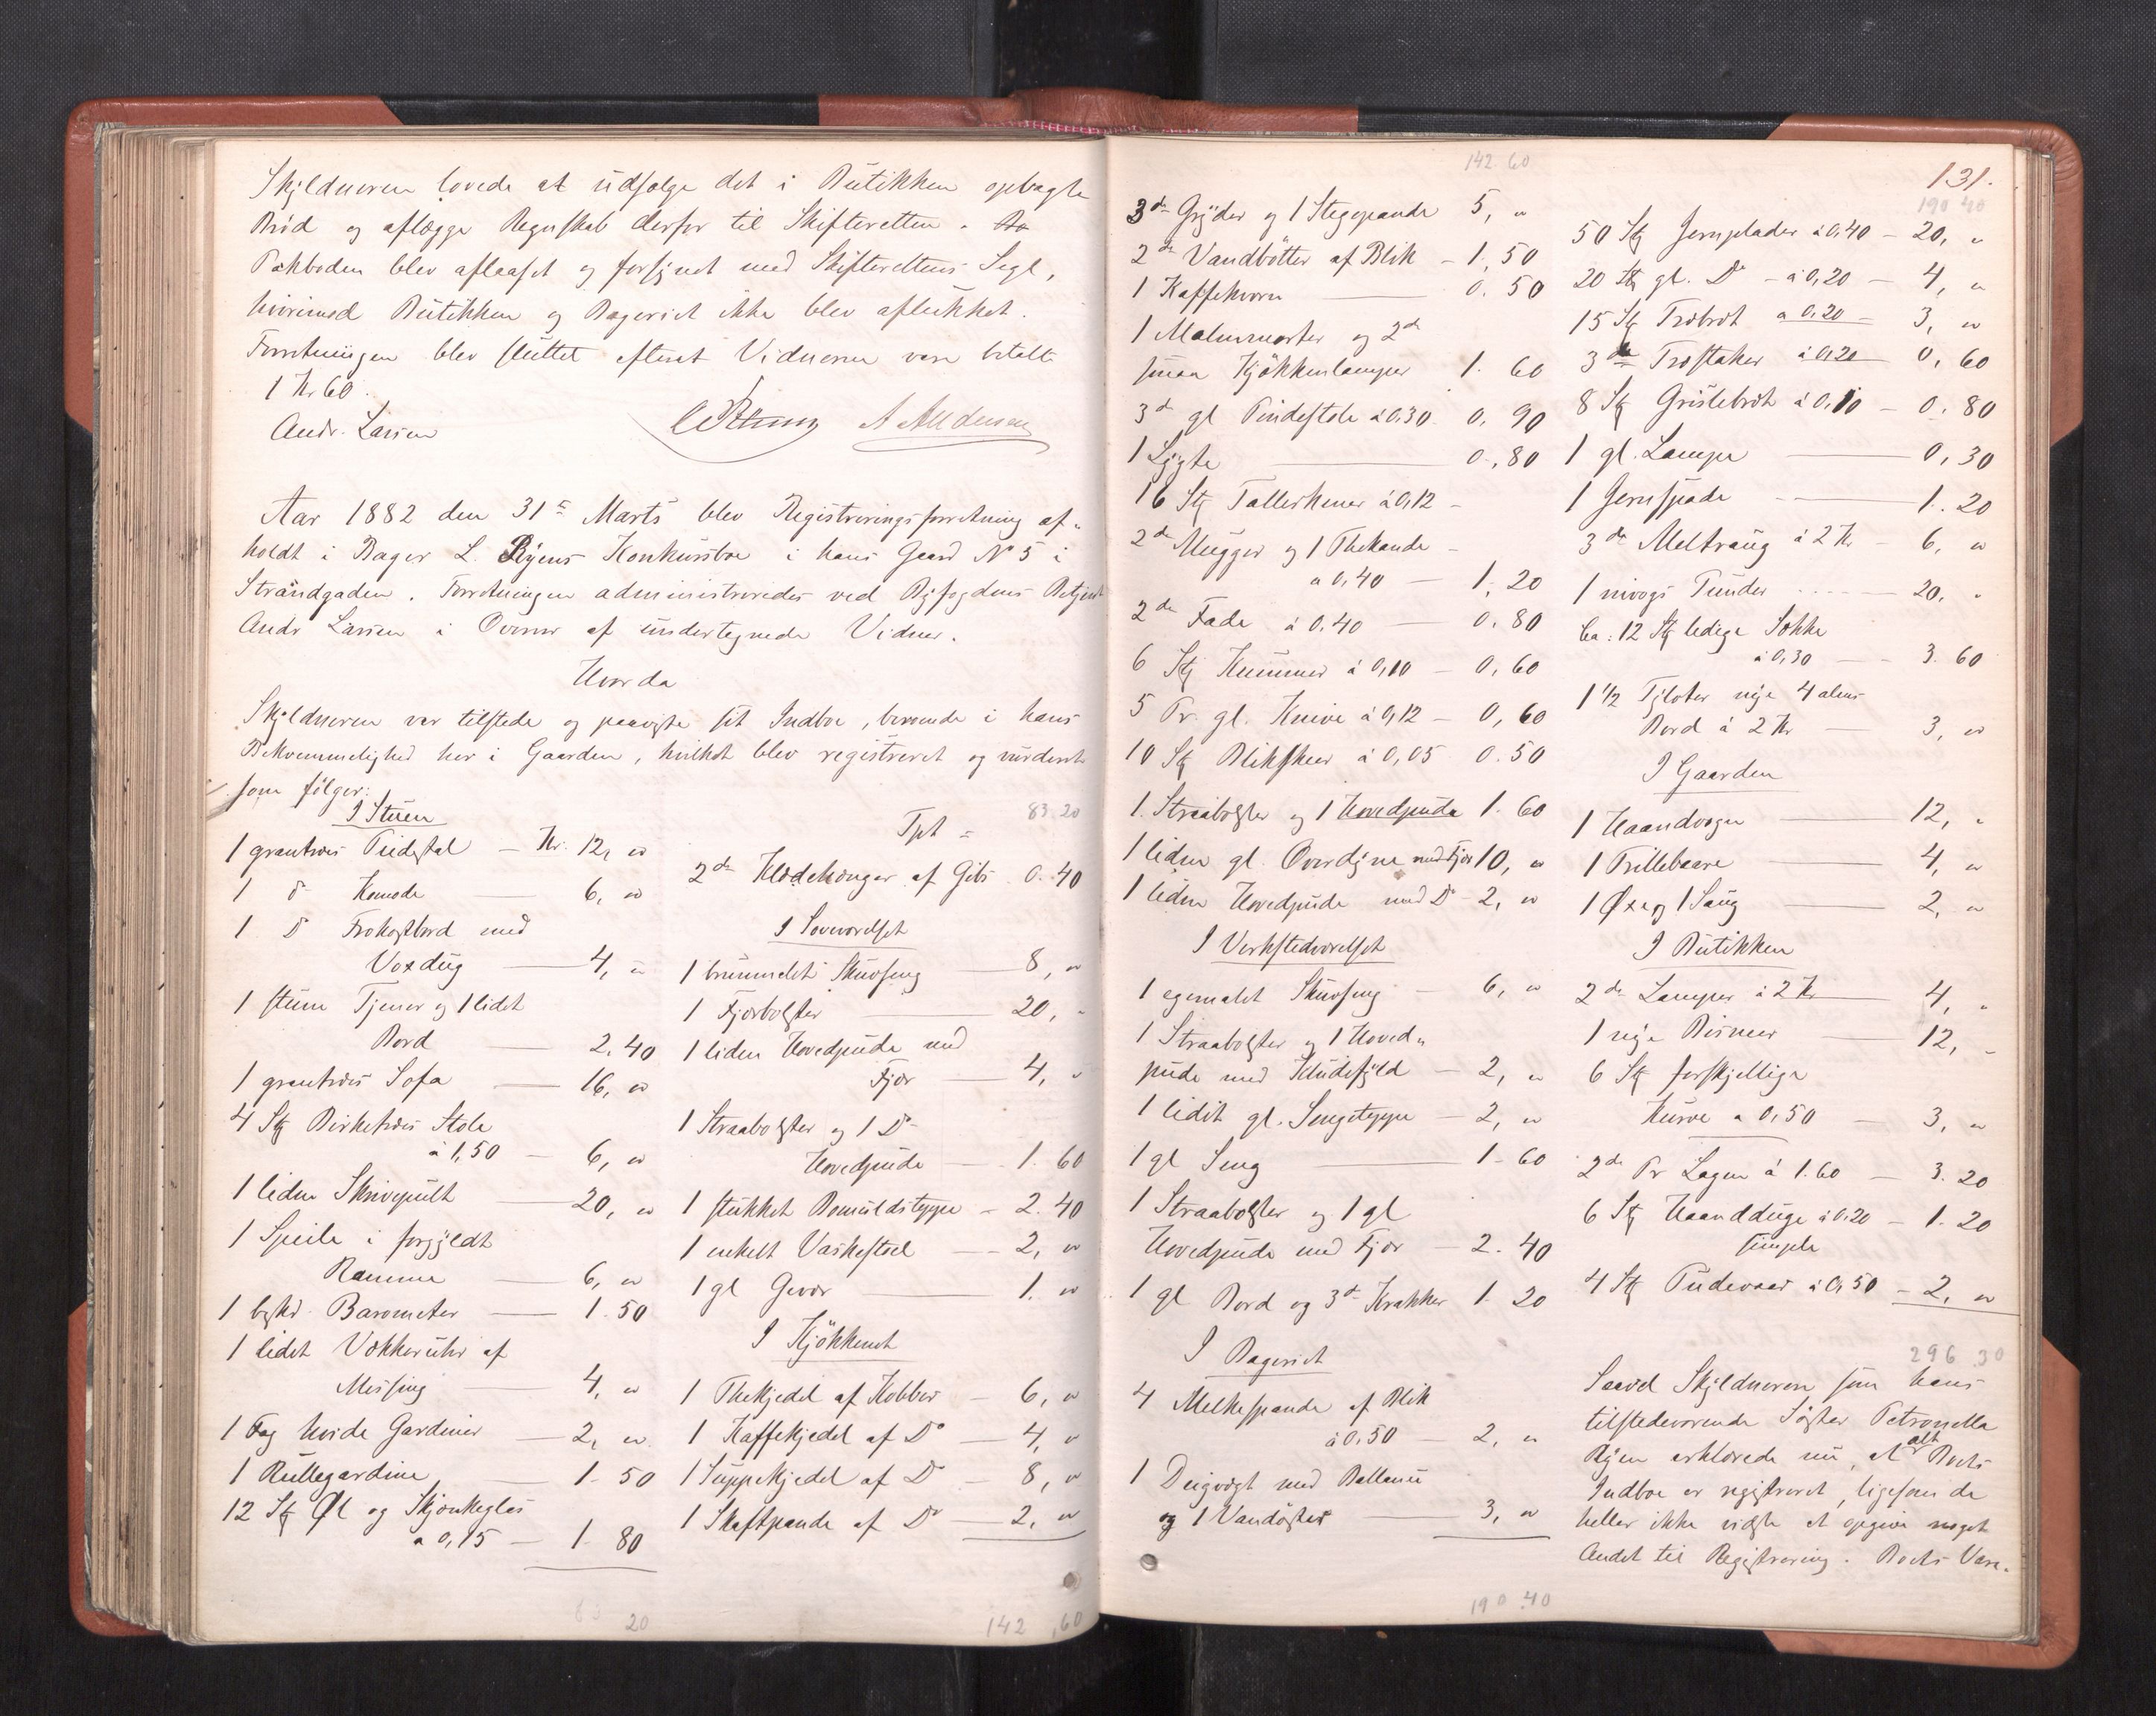 Skyldneren lovede at udsælge det i Butikken opbagte
Brød og aflægge Regnskab derfor til Skifteretten.
Pakboden blev aflaaset og forsynet med Skifterettens Segl,
hvorimod Butikken og Bageriet ikke blev aflukket.
Forretningen blev sluttet efterat Vidnerne vare betalt
1 Kr 60.
Andr. Larsen
Aar 1882 den 31te Marts blev Registreringsforretning af-
holdt i Bager L. Ryens Konkursbo i hans Gaard No 5 i
Strandgaden. Forretningen administreredes ved Byfogdens Betjent
Andr Larsen i Overvær af undertegnede Vidner.
Hvorda
Skyldneren var tilstede og paaviste sit Indbo, beroende i hans
Bekvemmelighed her i Gaarden, hvilket blev registreret og vurderet
som følger:
I Stuen
1 grantræs Pidestal - Kr. 12, "
1 do Komode 6, "
1 do Frokostbord med
Voxdug 4, "
1 stum Tjener og 1 lidet
Bord 2.40
1 grantræs Sofa 16, "
4 Stk Birketræs Stole
à 1,50 - 6, "
1 liden Skrivepult 20, "
1 Speile i forgyldt
Ramme 6, "
1 beskd. Barometer 1.50
1 lidet Vækkeruhr af
Messing 4, "
1 Fag hvide Gardiner 2, "
1 Rullegardine 1.50
12 Stk Øl og Skjænkeglas
a 0,15 - 1 80
20
83.20
Tpt =
2de Klædehænger af Gibs 0.40
I Soveværelset
1 brunmalet Skuvseng 8, "
1 Fjærbolster 20, "
1 liden Hovedpude med
Fjær 4, "
1 Straabolster og 1 Do
Hovedpude 1.60
1 stukket Bomuldsteppe - 2.40
1 enkelt Vaskestol 2, "
1 gl Gevær 1. "
I Kjøkkenet
1 Thekjedel af Kobber - 6, "
1 Kaffekjedel af Do 4, "
1 Suppekjedel af Do 8, "
1 Skaftpande af Do 2, "
142,60
142.60
3de Gryder og 1 Stegepande 5, "
2de Vandbøtter af Blik - 1.50
1 Kaffekværn 0.50
1 Malmmorter og 2de
smaa Kjøkkenlamper 1.60
3de gl Pindestole à 0.30. 0.90
1 Lygte 0.80
16 Stk Tallerkener à 0,12 -
2de Mugger og 1 Thekande -
a 0,40 - 1.20
2de Fade à 0.40 - 0.80
6 Stk Kummer à 0,10 - 0,60
5 Pr. gl. Knive à 0,12 - 0,60
10 Stk Blikskeer à 0,05 0.50
1. Straabolster og 1 Hovedpude 1.60
1 liden gl. Overdyne med Fjær 10, "
1 liden Hovedpude med Do - 2, "
I Verkstedværelset
1 egemalet Skuvseng - 6, "
1 Straabolster og 1 Hoved-
pude med Kludefyld - 2, "
1 lidet gl. Sengeteppe - 2, "
1 gl Seng 1-60
1 Straabolster og 1 gl
Hovedpude med Fjær - 2.40
1 gl Bord og 3de Krakker 1.20
I Bageriet
4 Melkespande af Blik
à 0,50 - 2, "
1 Deigvægt med Ballance
og 1 Vandøster 3, "
190.40
131.
190 40
50 Stk Jernplader à 0,40 - 20, "
20 Stk gl. Do - à 0,20 - 4, "
15 Stk Træbret a 0,20 - 3, "
3de Træstaker à 0,20 0,60
8 Stk Gristebret à 0,10 - 0.80
1 gl. Lampe 0,30
1 Jernspade 1.20
3de Meltraug à 2 Kr - 6, "
20, "
Ca: 12 Stk ledige Sække
à 0,30 - 3.60
1 1/2 Tylvter nye 4 alens
Bord à 2 Kr 3, "
I Gaarden
1 Haandvogn 12, "
1 Trillebaare 4, "
1 Øxe og 1 Saug 2, "
I Butikken
2de Lamper à 2 Kr 4, "
1 nye Bismer 12, "
6 Stk forskjellige
Kurve a 0,50 3, "
2de Pr Lagen à 1.60 - 3.20
6 Stk Haandduge à 0.20 - 1.20
simple
4 Stk Pudevaar à 0,50 - 2, "
296.30
Saavel Skyldneren som hans
tilstedeværende Søster Petronella
Ryen erklærede nu, at alt Boets
Indbo er registreret, ligesom de
heller ikke vidste at opgive noget
Andet til Registrering. Boets Vare-